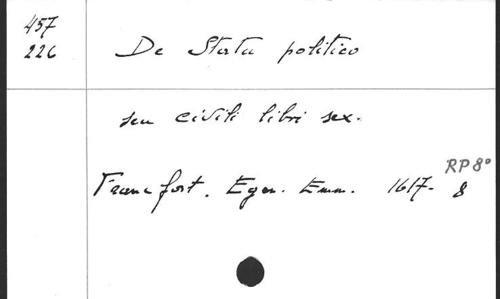 457
226
De Statu politico
seu civili libri sex.
RP 8°
Francfort. Egen. Emm. 1617. 8